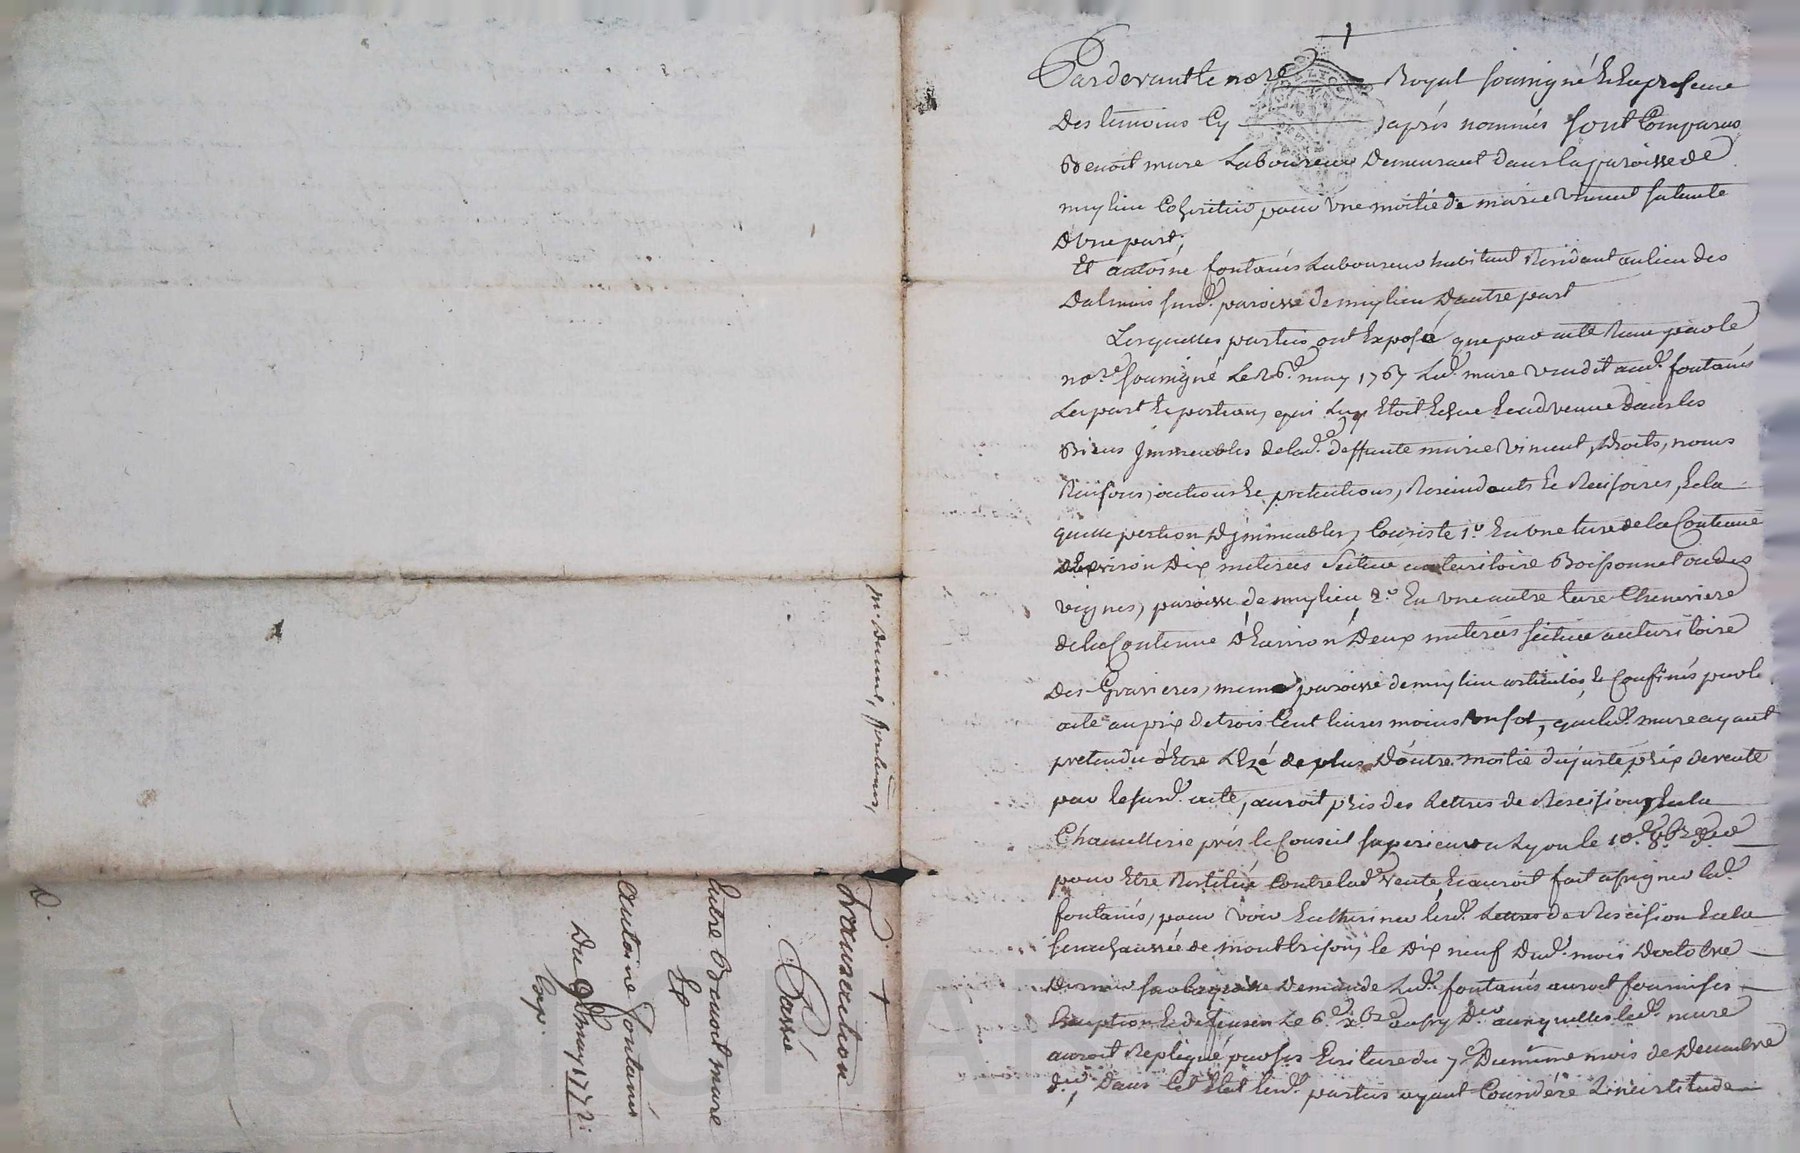 Pardevant le no.re Royal soussigné & En presence
des temoins Cy d'après nommés sont Comparus
Benoit mure Laboureur Demeurant dans la paroisse de
mylieu Coheritier pour une moitié de marie Vincent sa tante
d'une part;
Et antoine fontanés Laboureur habitant Residant au lieu des
Dalmais susd. paroisse de mylieu d'autre part
Lesquelles parties ont Exposé, que par acte Reçu par le
no.re soussigné Le 26.e may 1767 Led. mure vendit aud. fontanés
La part & portion, qui Luy Etoit Echue & advenue dans les
Biens Jmmeubles de lad. deffunte marie Vincent, droits, noms
Raisons, actions & pretentions, Rescindants & Rescisoires, & la
quelle portion d'jmmeubles, Consiste 1.o En une terre de la Contenue
d'Environ Dix meterées Scituée au territoire Boissonnet ou des
vignes, paroisse de mylieu 2.o En une autre terre Cheneviere
de la Contenue d'Environ Deux meterées scituée au territoire
des Gravieres, meme paroisse de mylieu articulés, & Confinés par le
acte au prix de trois Cent livres moins un sol, que led. mure ayant
pretendu d'Etre Lezé de plus D'outre moitié du juste prix de vente
par le susd. acte, auroit pris des Lettres de Rescision En la
Chancellerie près le Conseil superieur a Lyon le 10.e 8.bre d.er
pour Etre Restitué Contre lad. Vente, & auroit fait assigner led.
fontanés, pour voir Entheriner lesd. Lettres de Rescision En la
senechaussée de montbrison, le Dix neuf Dud. mois D'octobre
Dernier sur laquelle Demande Led. fontanés auroit fourni ses
Exception & defenses Le 6.e x.bre auxquelles led. mure
auroit Repliqué par ses Ecriture du 7.e Du même mois de Decembre
d.er, Dans Cet Etat lesd. parties ayant Considéré L'incertitude
†
Transaction
Passée
Entre Benoit mure
Et
Antoine Fontanés
Du 9.e may 1772:
Exp.
D.